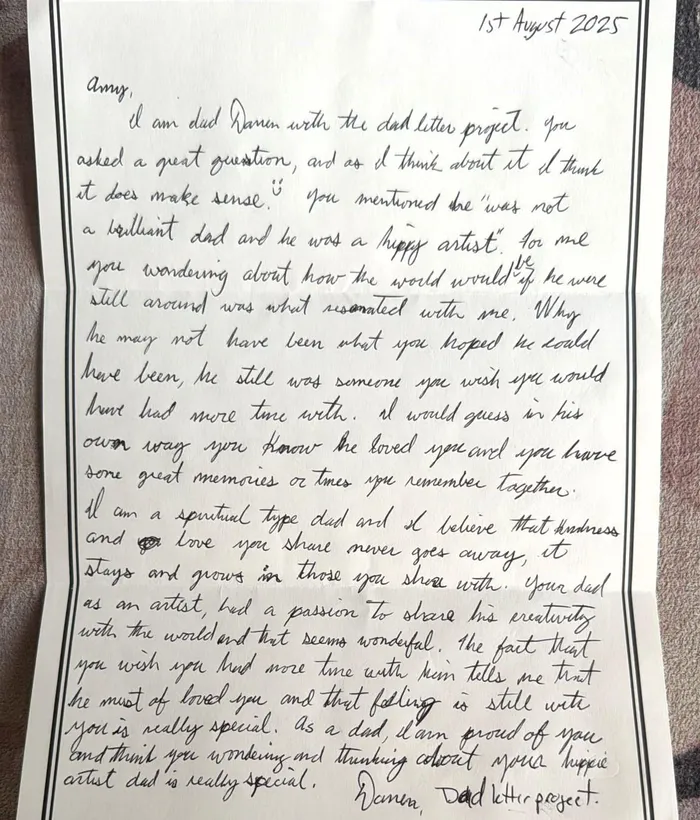 1st August 2025
Amy,
I am dad Darren with the dad letter project. You
asked a great question, and as I think about it I think
it does make sense. You mentioned he "was not
a brilliant dad and he was a hippy artist". For me
you wondering about how the world would be if he were
still around was what resonated with me. Why
he may not have been what you hoped he could
have been, he still was someone you wish you would
have had more time with. I would guess in his
own way you know he loved you and you have
some great memories or times you remember together.
I am a spiritual type dad and I believe that kindness
and love you share never goes away, it
stays and grows in those you share with. Your dad
as an artist, had a passion to share his creativity
with the world and that seems wonderful. The fact that
you wish you had more time with him tells me that
he must of loved you and that feeling is still with
you is really special. As a dad, I am proud of you
and think you wondering and thinking about your hippie
artist dad is really special.
Darren, Dad letter project.